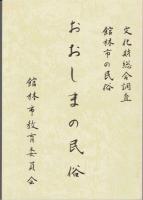 文化財総合調査
館林市の民俗
おおしまの民俗
館林市教育委員会